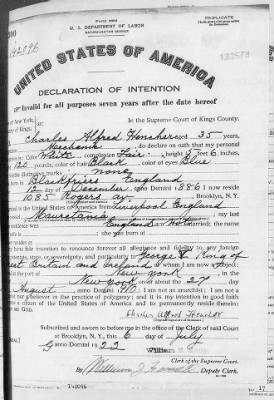 U. S. DEPARTMENT OF LABOR
NATURALIZATION SERVICE
DUPLICATE
142096
UNITED STATES OF AMERICA
DECLARATION OF INTENTION
Invalid for all purposes seven years after the date hereof
In the Supreme Court of Kings County.
Charles Alfred aged 35 years,
Mechanic do declare on oath that my personal
White complexion Fair feet 6 inches,
pounds, color of hair Black color of eyes Blue
none
Blackfriers England
12 day of December anno Domini 1886; I now reside
1085 Rogers av Brooklyn, N. Y.
the United States of America from Liverpool England
Mauretania my last
England I am not married; the name
she was born at
It is my bona fide intention to renounce forever all allegiance and fidelity to any foreign
state, or sovereignty, and particularly to George V King of
Great Britain and Ireland of whom I am now a subject
the port of New York in the
New York on or about the 27 day
August anno Domini 1910; I am not an anarchist; I am not a
nor a believer in the practice of polygamy; and it is my intention in good faith
citizen of the United States of America and to permanently reside therein:
GOD.
Charles Alfred
Subscribed and sworn to before me in the office of the Clerk of said Court
at Brooklyn, N. Y., this 6 day of July
anno Domini 1922
William
Clerk of the Supreme Court.
By William J. Deputy Clerk.
142096
17